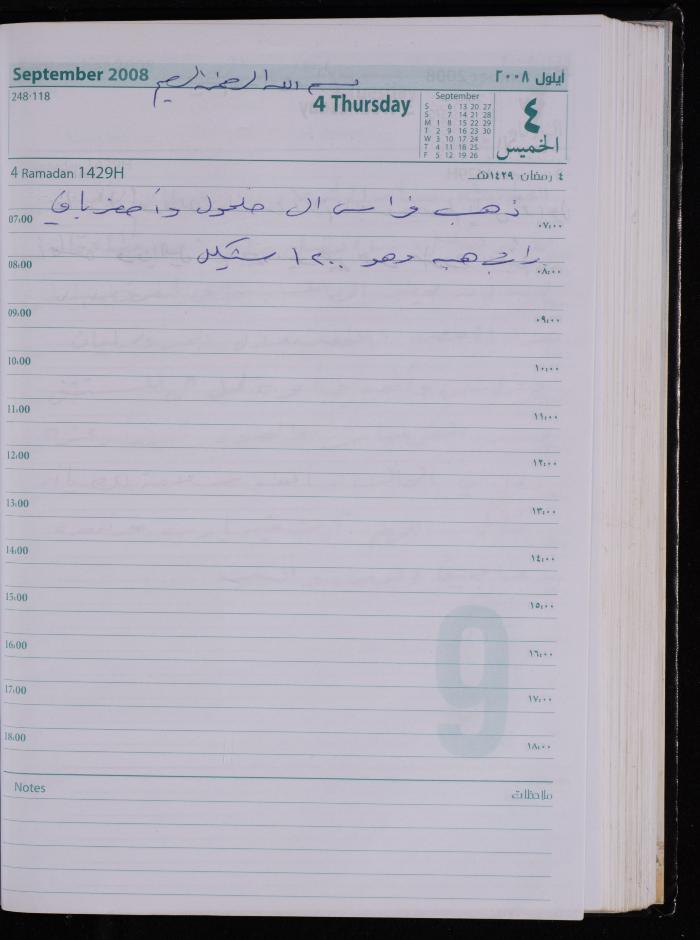 September 2008 بسم الله الرحمن الرحيم أيلول ٢٠٠٨
248-118 4 Thursday
September
S 6 13 20 27
S 7 14 21 28
M 1 8 15 22 29
T 2 9 16 23 30
W 3 10 17 24
T 4 11 18 25
F 5 12 19 26
٤
الخميس
4 Ramadan 1429H ٤ رمضان ١٤٢٩هـ
ذهب فراس الى حلحول وأحضر باقي
07:00 ٠٧:٠٠
راتب هبه وهو ١٢٠٠ شيكل
08:00 ٠٨:٠٠
09:00 ٠٩:٠٠
10:00 ١٠:٠٠
11:00 ١١:٠٠
12:00 ١٢:٠٠
13:00 ١٣:٠٠
14:00 ١٤:٠٠
15:00 ١٥:٠٠
16:00 ١٦:٠٠
17:00 ١٧:٠٠
18:00 ١٨:٠٠
9
Notes ملاحظات